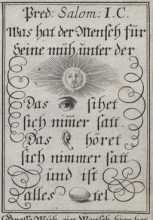 Pred: Salom: I. C.
Was hat der Mensch für
seine müh unter der
Das sihet
sich nimer satt
Das höret
sich nimmer satt
und ist
alles itel